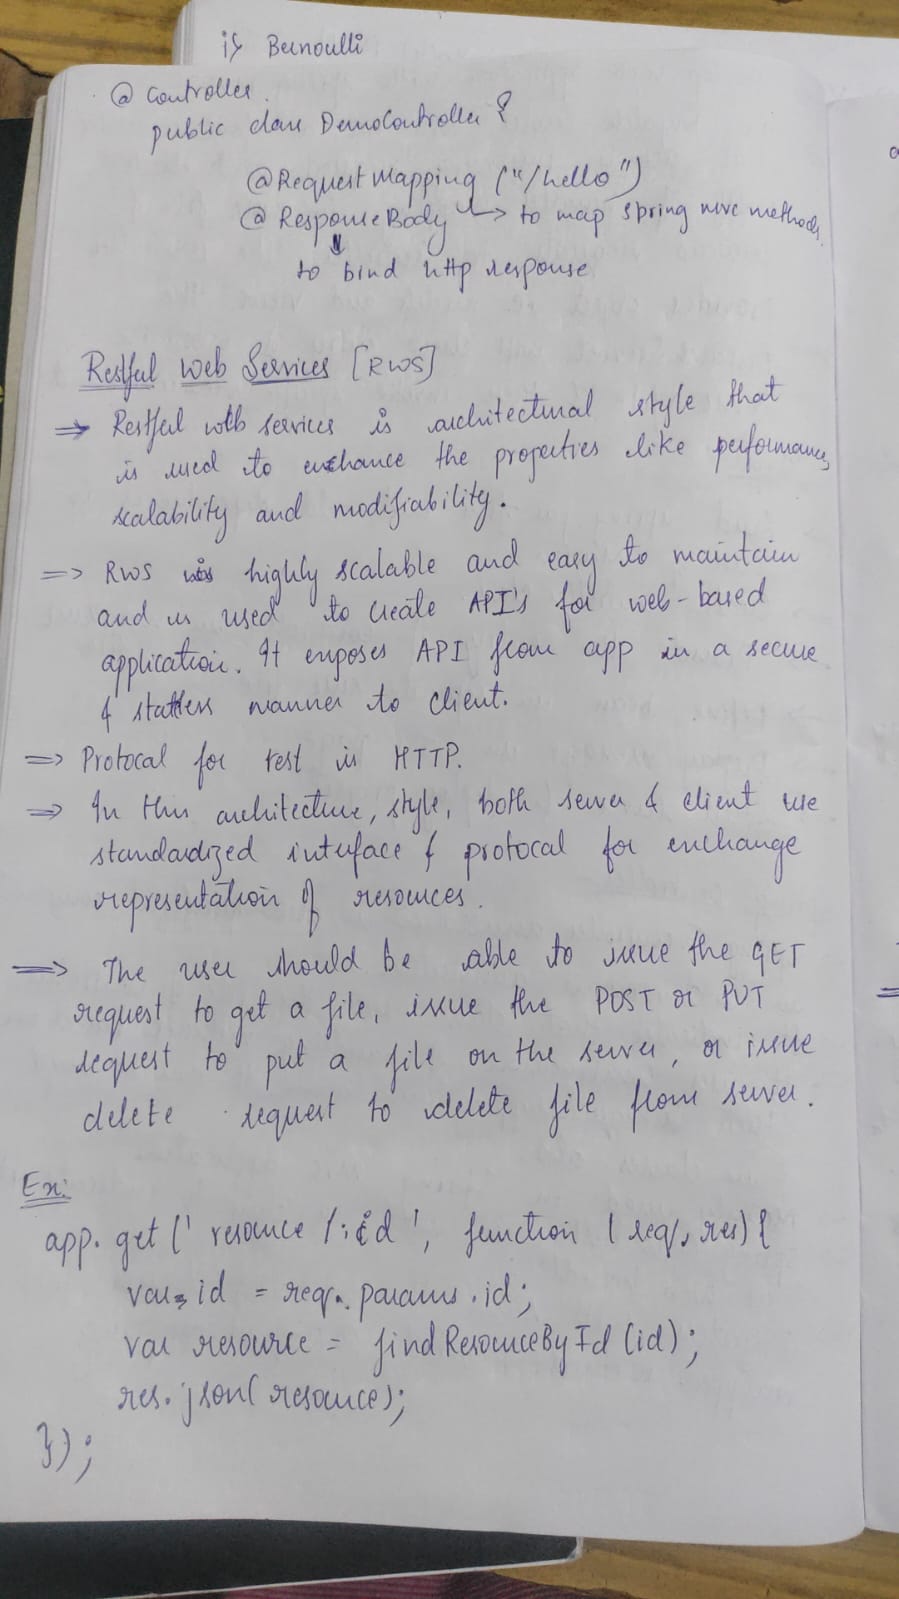 if Bernoulli
@ Controller
public class DemoController {
@RequestMapping ("/hello")
@ ResponseBody → to map spring mvc methods.
to bind http response
Restful Web Services [RWS]
⇒ Restful web services is architectural style that
is used to enhance the properties like performance,
scalability and modifiability.
⇒ RWS is highly scalable and easy to maintain
and is used to create API's for web-based
application. It exposes API from app in a secure
& statless manner to client.
⇒ Protocal for rest is HTTP.
⇒ In this architecture, style, both server & client use
standardized interface & protocal for exchange
representation of resources.
⇒ The user should be able to issue the GET
request to get a file, issue the POST or PUT
request to put a file on the server, or issue
delete request to delete file from server.
Ex:
app. get (' resource /:id ', function (req, res) {
var id = req. params . id;
var resource = findResourceById (id);
res. json( resource);
});